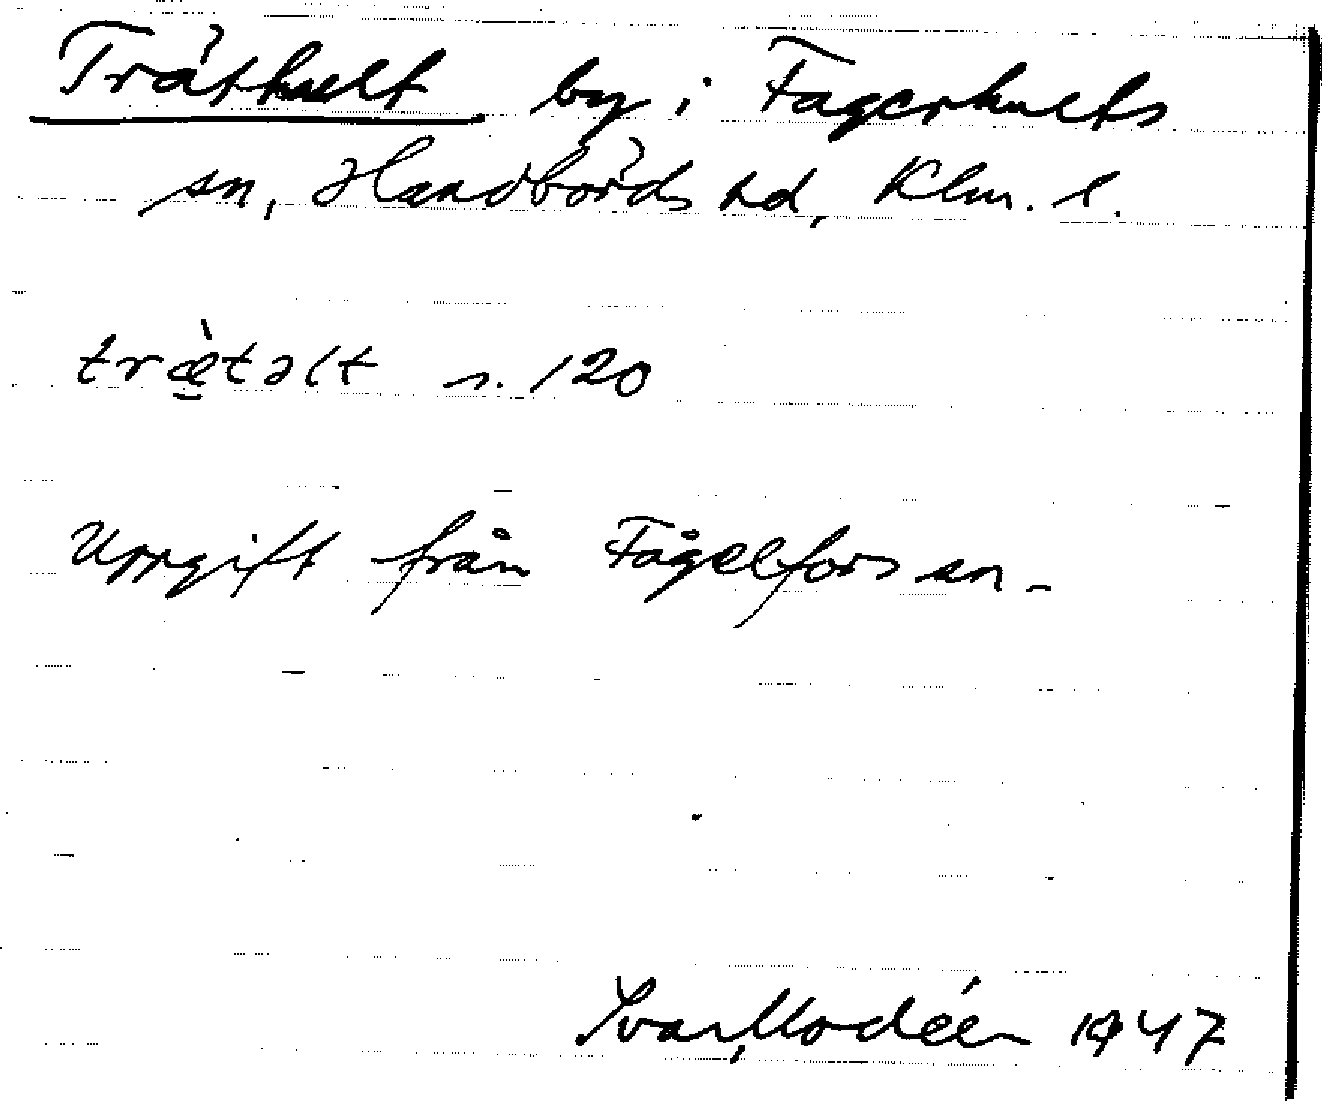 Träthult by i Fagerhults
sn, Handbörds hd, Klm. l.
træ̀təlt s. 120
Uppgift från Fågelfors sn.
Ivar Modéer 1947